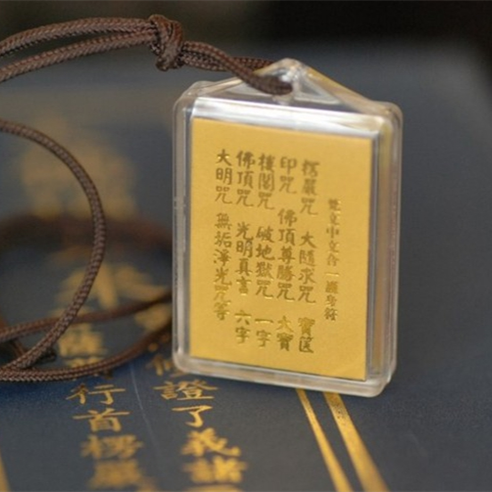 梵文中文合一護身符
楞嚴咒 大隨求咒 寶篋
印咒 佛頂尊勝咒 大寶
樓閣咒 破地獄咒 一字
佛頂咒 光明真言 六字
大明咒 無垢淨光咒等
證了義諸
行首楞嚴